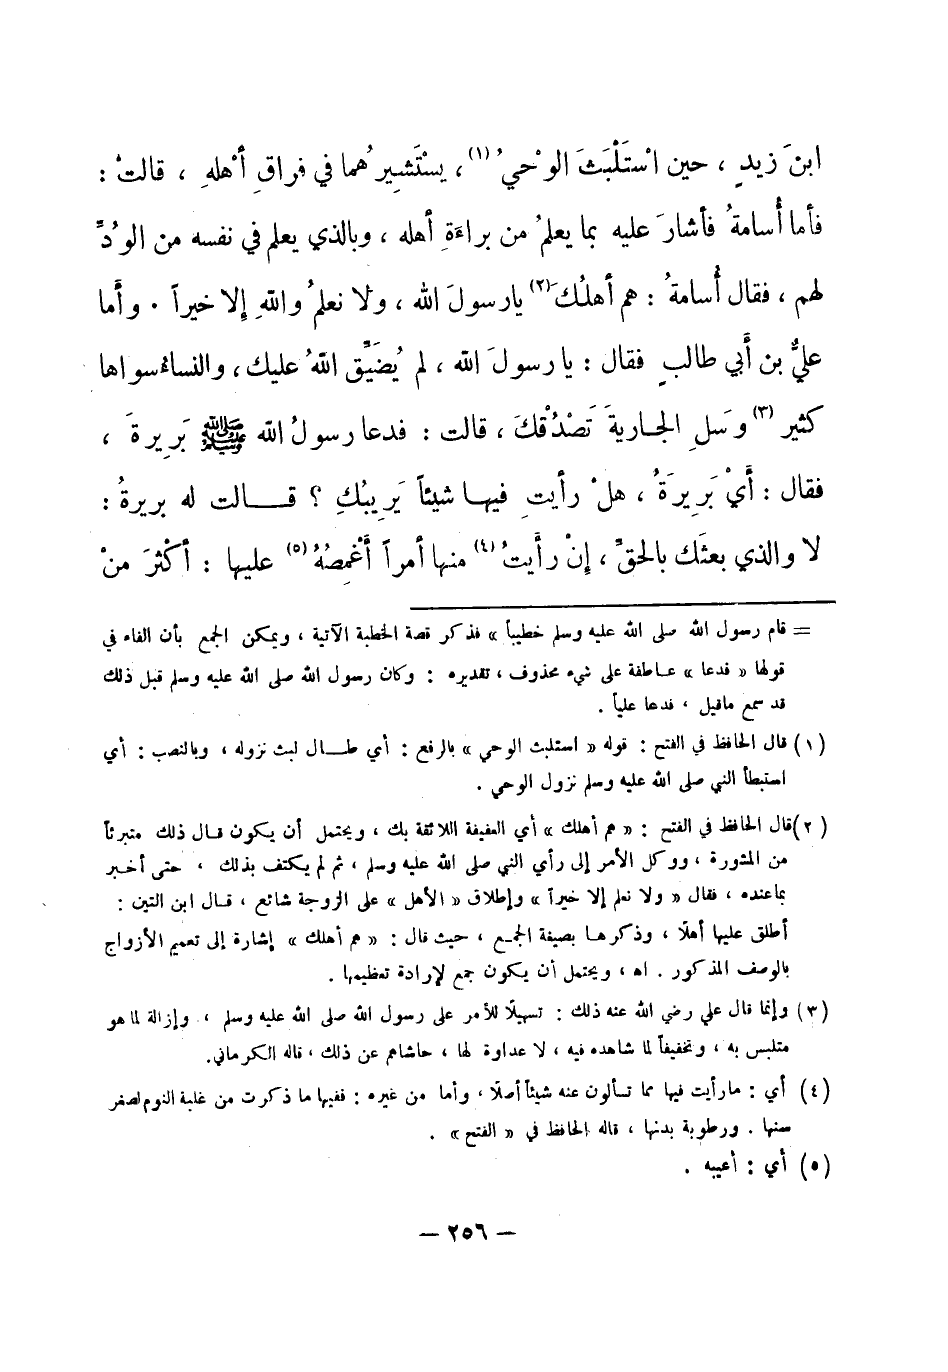 ابنَ زيدٍ ، حين اسْتَلْبَثَ الوحْيُ (١) ، يسْتَشيرُهما في فراقِ أهْلهِ ، قالتْ :
فأما أُسامةُ فأشارَ عليه بما يعلمُ من براءَةِ أهله ، وبالذي يعلم في نفسه من الوُدِّ
لهم ، فقال أُسامةُ : هم أهلُك (٢) يارسولَ الله ، ولا نعلمُ واللهِ إلا خيراً . وأما
عليُّ بن أَبي طالبٍ فقال : يا رسولَ الله ، لم يُضيِّق اللهُ عليك ، والنساءُ سواها
كثير (٣) وسَلِ الجاريةَ تَصْدُقْكَ ، قالت : فدعا رسولُ الله ﷺ بَرِيرةَ ،
فقال : أَيْ بَرِيرَةُ ، هلْ رأيتِ فيها شيئاً يَرِيبُكِ ؟ قالت له بريرةُ :
لا والذي بعثَك بالحقِّ ، إنْ رأَيتُ (٤) منها أمراً أَغْمِصُهُ (٥) عليها : أكْثرَ منْ
= قام رسول الله صلى الله عليه وسلم خطيباً » فذكر قصة الخطبة الآتية ، ويمكن الجمع بأن الفاء في
قولها « فدعا » عاطفة على شيء محذوف ، تقديره : وكان رسول الله صلى الله عليه وسلم قبل ذلك
قد سمع ماقيل ، فدعا علياً .
(١) قال الحافظ في الفتح : قوله « استلبث الوحي » بالرفع : أي طال لبث نزوله ، وبالنصب : أي
استبطأ النبي صلى الله عليه وسلم نزول الوحي .
(٢) قال الحافظ في الفتح : « هم أهلك » أي العفيفة اللائقة بك ، ويحتمل أن يكون قال ذلك متبرئاً
من المشورة ، ووكل الأمر إلى رأي النبي صلى الله عليه وسلم ، ثم لم يكتف بذلك ، حتى أخبر
بماعنده ، فقال « ولا نعلم إلا خيراً » وإطلاق « الأهل » على الزوجة شائع ، قال ابن التين :
أطلق عليها أهلًا ، وذكرها بصيغة الجمع ، حيث قال : « هم أهلك » إشارة إلى تعميم الأزواج
بالوصف المذكور . اه ، ويحتمل أن يكون جمع لإرادة تعظيمها .
(٣) وإنما قال علي رضي الله عنه ذلك : تسهيلًا للأمر على رسول الله صلى الله عليه وسلم ، وإزالة لما هو
متلبس به ، وتخفيفاً لما شاهده فيه ، لا عداوة لها ، حاشاهم عن ذلك ، قاله الكرماني.
(٤) أي : مارأيت فيها مما تسألون عنه شيئاً أصلًا ، وأما من غيره : ففيها ما ذكرت من غلبة النوم لصغر
سنها . ورطوبة بدنها ، قاله الحافظ في « الفتح » .
(٥) أي : أعيبه .
— ٢٥٦ —